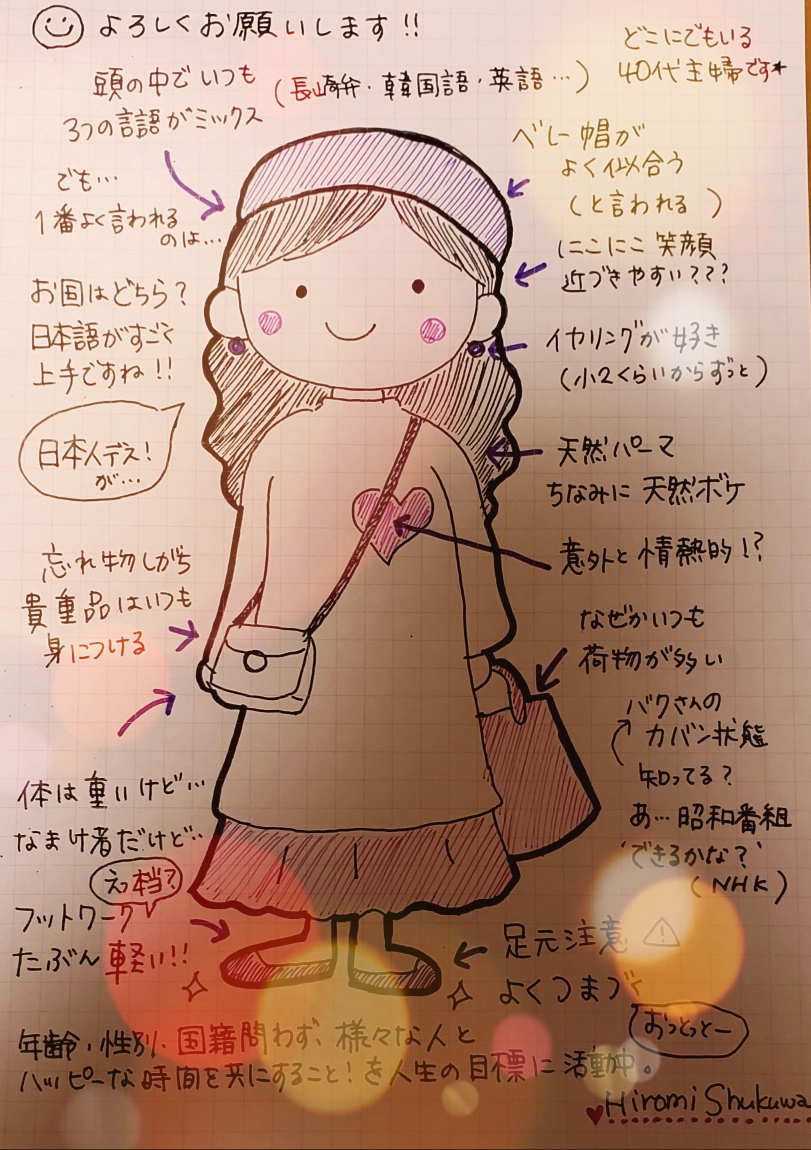 よろしくお願いします!!
どこにでもいる
40代主婦です*
頭の中でいつも
3つの言語がミックス
(長崎弁・韓国語・英語…)
でも…
1番よく言われる
のは…
お国はどちら?
日本語がすごく
上手ですね!!
日本人デス!
が…
忘れ物しがち
貴重品はいつも
身につける
体は重いけど…
なまけ者だけど…
えっ本当?
フットワーク
たぶん軽い!!
ベレー帽が
よく似合う
(と言われる )
にこにこ笑顔
近づきやすい???
イヤリングが好き
(小2くらいからずっと)
天然パーマ
ちなみに天然ボケ
意外と情熱的!?
なぜかいつも
荷物が多い
バクさんの
カバン状態
知ってる?
あ…昭和番組
'できるかな?'
(NHK)
足元注意
よくつまづく
おっとっとー
年齢・性別・国籍問わず、様々な人と
ハッピーな時間を共にすること!を人生の目標に活動中。
Hiromi Shukuwa